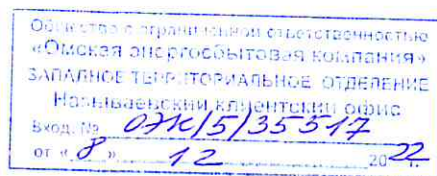 Общество с ограниченной ответственностью
«Омская энергосбытовая компания»
ЗАПАДНОЕ ТЕРРИТОРИАЛЬНОЕ ОТДЕЛЕНИЕ
Называевский клиентский офис
Вход. № ОЭК/5/35517
от « 8 » 12 2022 г.